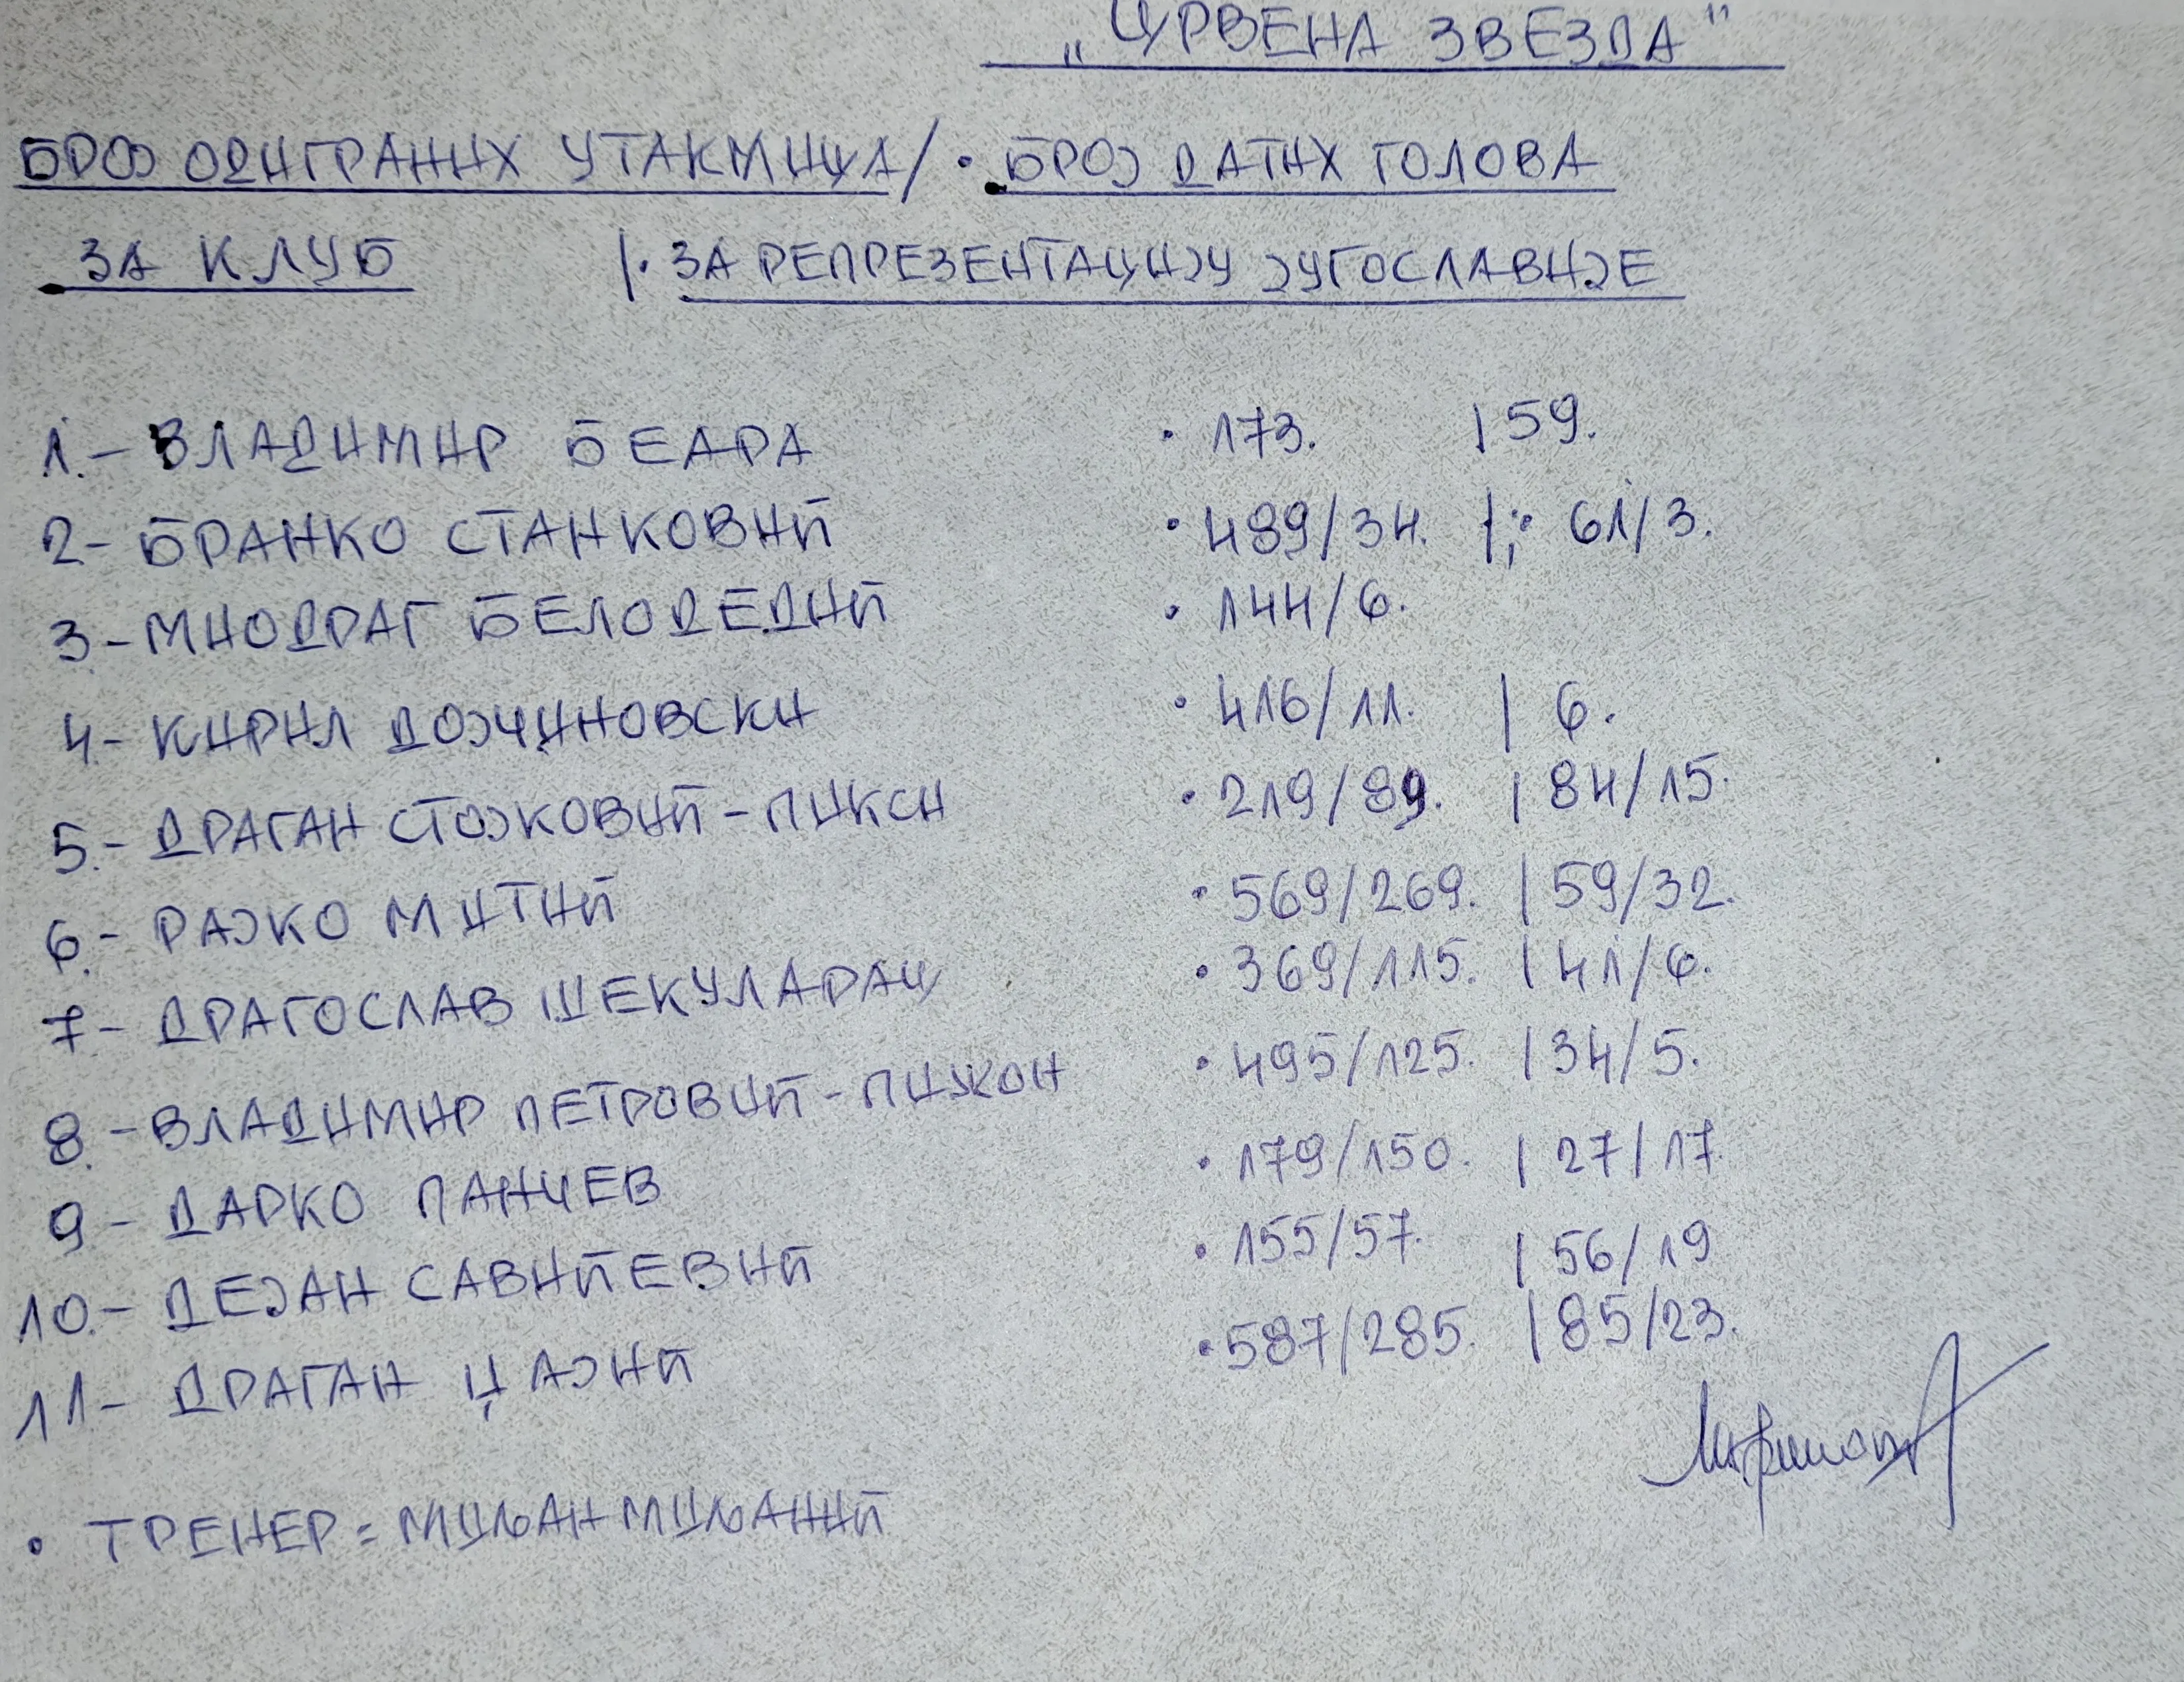 „ЦРВЕНА ЗВЕЗДА"
БРОЈ ОДИГРАНИХ УТАКМИЦА/ • БРОЈ ДАТИХ ГОЛОВА
ЗА КЛУБ |• ЗА РЕПРЕЗЕНТАЦИЈУ ЈУГОСЛАВИЈЕ
1.- ВЛАДИМИР БЕАРА • 173. | 59.
2- БРАНКО СТАНКОВИЋ • 489/34. |;• 61/3.
3- МИОДРАГ БЕЛОДЕДИЋ • 144/6.
4- КИРИЛ ДОЈЧИНОВСКИ • 416/11. | 6.
5.- ДРАГАН СТОЈКОВИЋ-ПИКСИ • 219/89. | 84/15.
6.- РАЈКО МИТИЋ • 569/269. | 59/32.
7- ДРАГОСЛАВ ШЕКУЛАРАЦ • 369/115. | 41/6.
8.- ВЛАДИМИР ПЕТРОВИЋ-ПИЖОН • 495/125. | 34/5.
9- ДАРКО ПАНЧЕВ • 179/150. | 27/17.
10.- ДЕЈАН САВИЋЕВИЋ • 155/57. | 56/19
11- ДРАГАН ЏАЈИЋ • 587/285. | 85/23.
• ТРЕНЕР = МИЉАН МИЉАНИЋ